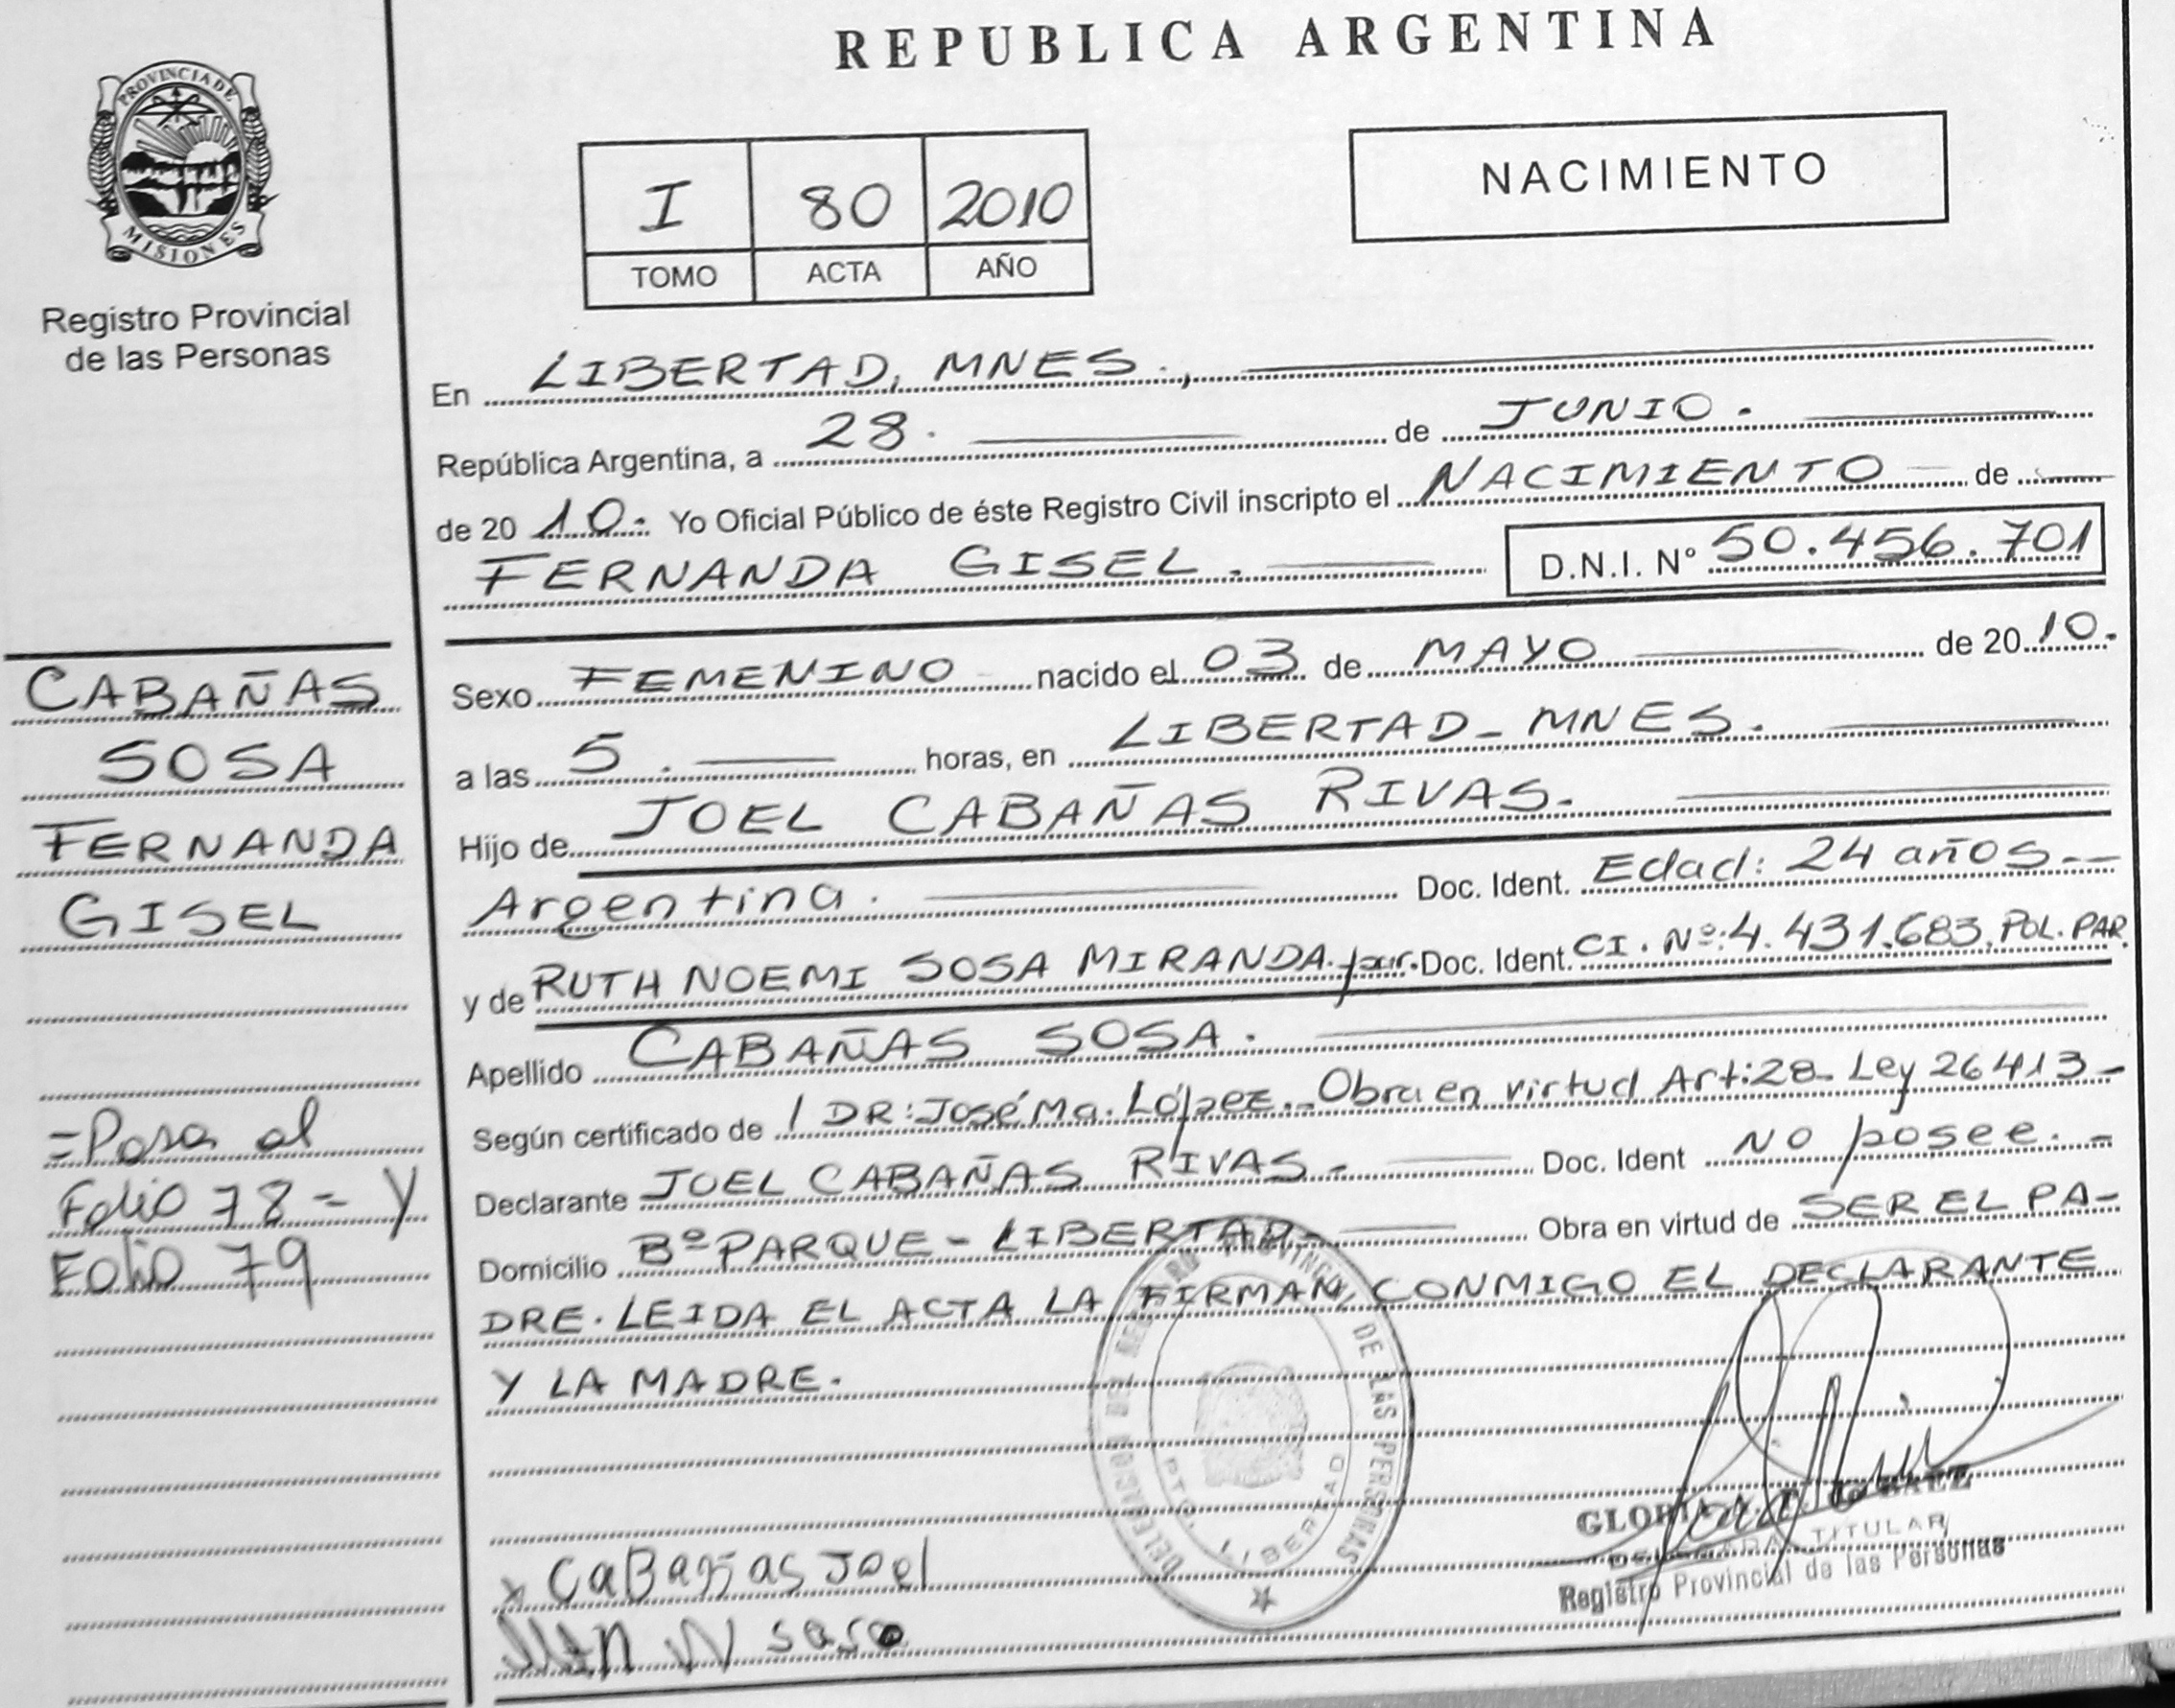 REPUBLICA ARGENTINA
PROVINCIA DE
MISIONES
Registro Provincial
de las Personas
I 80 2010
TOMO ACTA AÑO
NACIMIENTO
En LIBERTAD, MNES.,
República Argentina, a 28. de JUNIO.
de 20 10.- Yo Oficial Público de éste Registro Civil inscripto el NACIMIENTO de
FERNANDA GISEL. D.N.I. Nº 50.456.701
Sexo FEMENINO nacido el 03 de MAYO de 20 10.
a las 5. horas, en LIBERTAD - MNES.
Hijo de JOEL CABAÑAS RIVAS.-
Argentina. Doc. Ident. Edad: 24 años.-
y de RUTH NOEMI SOSA MIRANDA. Doc. Ident. CI. Nº: 4.431.683. POL. PAR.
Apellido CABAÑAS SOSA.
Según certificado de DR: José Ma. López.- Obra en virtud Art: 28- Ley 26413-
Declarante JOEL CABAÑAS RIVAS.- Doc. Ident NO posee.-
Domicilio Bº PARQUE - LIBERTAD- Obra en virtud de SER EL PA-
DRE. LEIDA EL ACTA LA FIRMAN, CONMIGO EL DECLARANTE
Y LA MADRE.
CABAÑAS
SOSA
FERNANDA
GISEL
=Pasa al
Folio 78 = Y
Folio 79
x CaBañas Joel
DELEGACION DEL REGISTRO PROVINCIAL DE LAS PERSONAS
PTO. LIBERTAD
GLORIA
DELEGADA TITULAR
Registro Provincial de las Personas